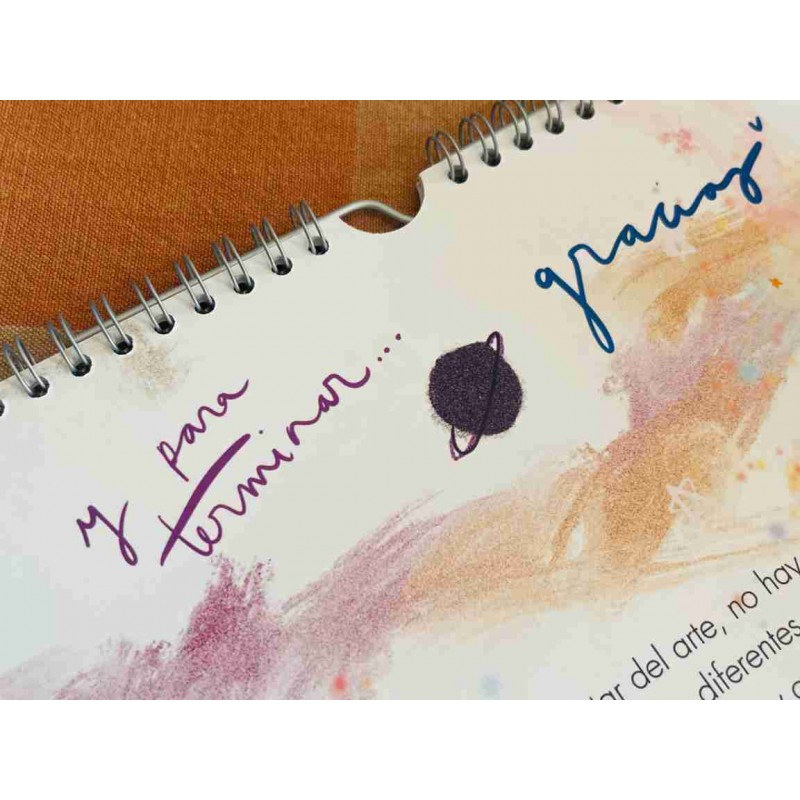 y para
terminar...
gracias
tar del arte, no hay
diferentes